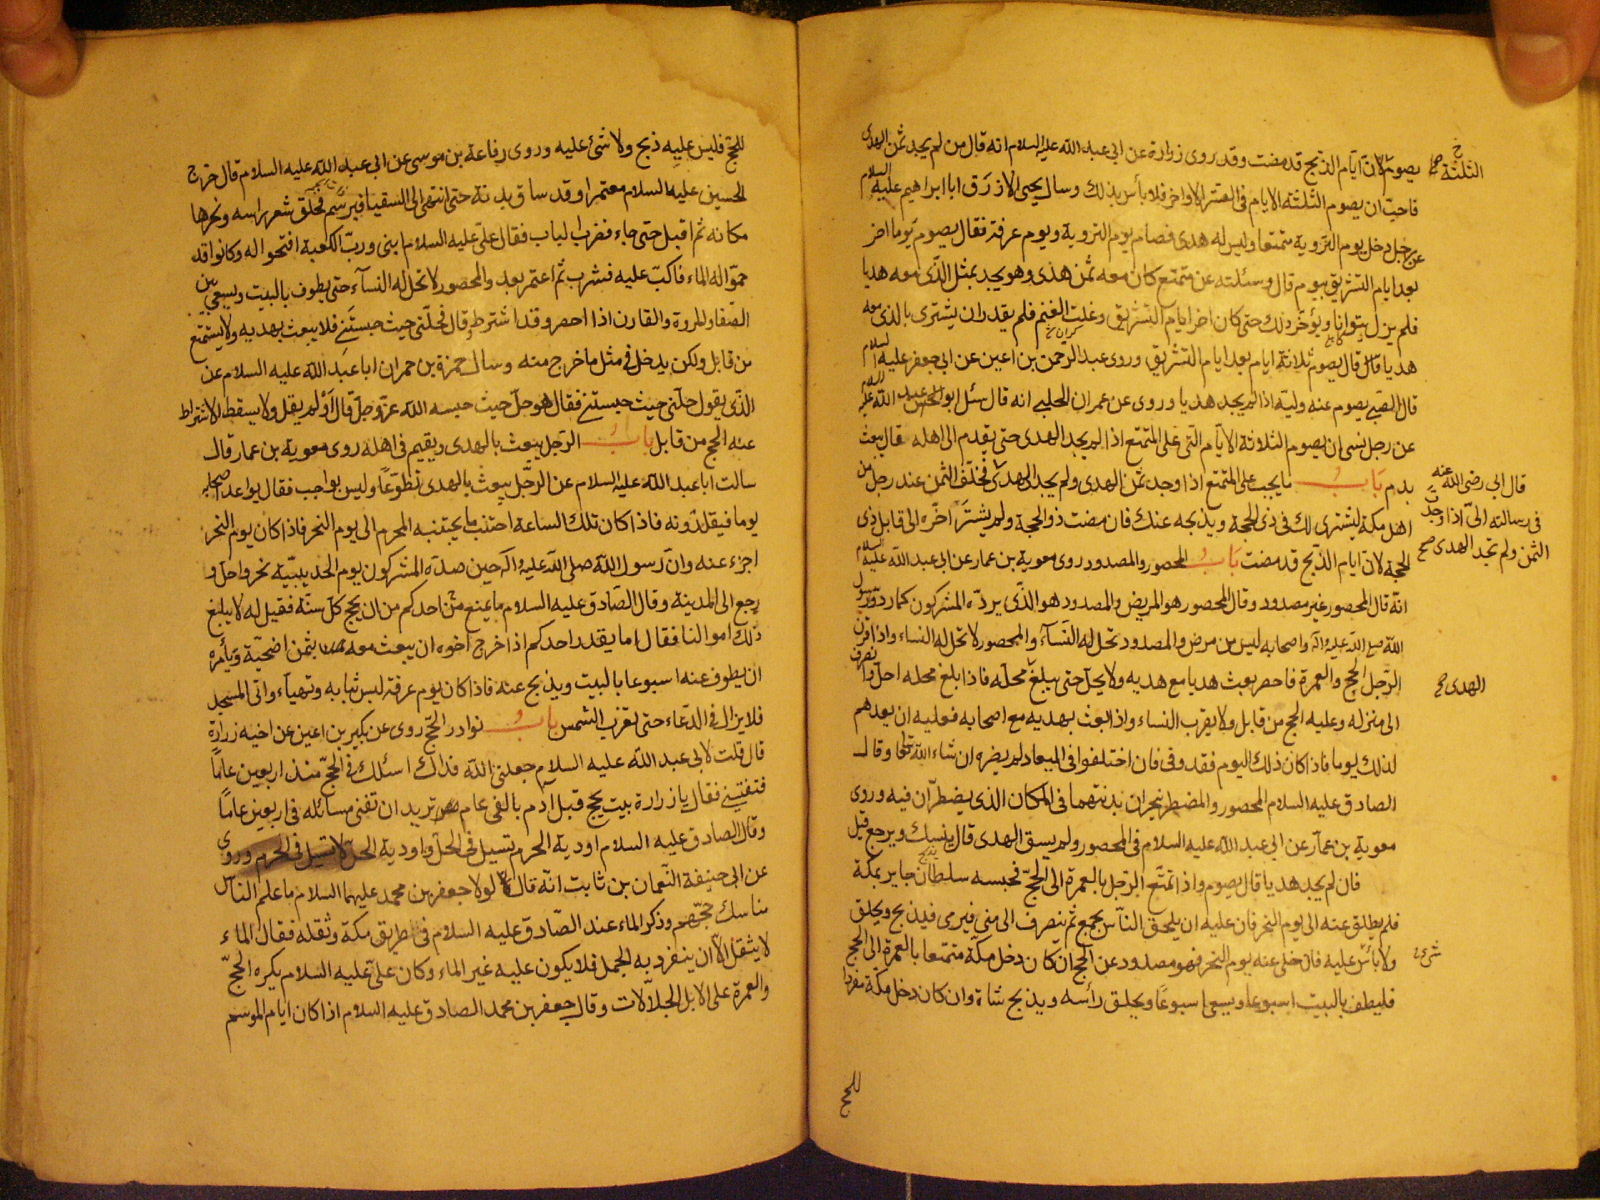 يصوم لان ايام الذبح قد مضت وقد روى زرارة عن ابى عبد الله عليه السلام انه قال من لم يجد ثمن الهدى
فاحب ان يصوم الثلثة الايام فى العشر الاواخر فلا بأس بذلك وسال يحيى الازرق ابا ابراهيم عليه السلام
عن رجل دخل يوم التروية متمتعا وليس له هدى فصام يوم التروية ويوم عرفة فقال يصوم يوما اخر
بعد ايام التشريق بيوم قال وسئلته عن متمتع كان معه ثمن هدى وهو يجد بمثل الذى معه هديا
فلم يزل يتوانا ويؤخر ذلك حتى كان اخر ايام التشريق وغلت الغنم فلم يقدر ان يشترى بالذى معه
هديا قال يصوم ثلاثة ايام بعد ايام التشريق وروى عبد الرحمن بن اعين عن ابى جعفر عليه السلام
قال الصبى يصوم عنه وليه اذا لم يجد هديا وروى عن عمران الحلبى انه قال سئل ابو عبد الله عليه السلام
عن رجل نسى ان يصوم الثلاثة الايام التى على المتمتع اذا لم يجد الهدى حتى يقدم الى اهله قال يبعث
بدم باب ما يجب على المتمتع اذا وجد ثمن الهدى ولم يجد الهدى فخلف الثمن عند رجل من
اهل مكة ليشترى لك فى ذى الحجة ويذبحه عنك فان مضت ذو الحجة ولم يشتر اخره الى قابل ذى
الحجة لان ايام الذبح قد مضت باب المحصور والمصدود روى معوية بن عمار عن ابى عبد الله عليه السلام
انه قال المحصور غير مصدود وقال المحصور هو المريض والمصدود هو الذى يرده المشركون كما ردوا رسول
الله صلى الله عليه واله واصحابه ليس من مرض والمصدود تحل له النساء والمحصور لا تحل له النساء واذا قرن
الرجل الحج والعمرة فاحصر بعث هديا مع هديه ولا يحل حتى يبلغ محله فاذا بلغ محله احل وانصرف
الى منزله وعليه الحج من قابل ولا يقرب النساء واذا بعث بهديه مع اصحابه فعليه ان يعدهم
لذلك يوما فاذا كان ذلك اليوم فقد وفى فان اختلفوا فى الميعاد لم يضره ان شاء الله تعالى وقال
الصادق عليه السلام المحصور والمضطر ينحران بدنتهما فى المكان الذى يضطران فيه وروى
معوية بن عمار عن ابى عبد الله عليه السلام فى المحصور ولم يسق الهدى قال ينسك ويرجع قيل
فان لم يجد هديا قال يصوم واذا تمتع الرجل بالعمرة الى الحج فحبسه سلطان جاير بمكة
فلم يطلق عنه الى يوم النحر فان عليه ان يلحق الناس بجمع ثم ينصرف الى منى فيرمى فيذبح ويحلق
ولا بأس عليه فان خلى عنه يوم النحر فهو مصدود عن الحج ان كان دخل مكة متمتعا بالعمرة الى الحج
فليطف بالبيت اسبوعا ويسعى اسبوعا ويحلق رأسه ويذبح شاة وان كان دخل مكة مفردا
الثلثة
قال ابى رضى الله عنه
فى رسالته الى اذا وجدت
الثمن ولم تجد الهدى صح
الهدى صح
شئ
للحج
للحج فليس عليه ذبح ولا شئ عليه وروى رفاعة بن موسى عن ابى عبد الله عليه السلام قال خرج
الحسين عليه السلام معتمرا وقد ساق بدنة حتى انتهى الى السقيا فبرسم فحلق شعر راسه ونحرها
مكانه ثم اقبل حتى جاء فضرب الباب فقال على عليه السلام ابنى ورب الكعبة افتحوا له وكانوا قد
حموا له الماء فاكب عليه فشرب ثم اعتمر بعد والمحصور لا تحل له النسآء حتى يطوف بالبيت ويسعى بين
الصفا والمروة والقارن اذا احصر وقد اشترط وقال فحلنى حيث حبستنى فلا يبعث بهديه ولا يستمتع
من قابل ولكن يدخل فى مثل ما خرج منه وسال حمزة بن حمران ابا عبد الله عليه السلام عن
الذى يقول حلنى حيث حبستنى فقال هو حل حيث حبسه الله عز وجل قال او لم يقل ولا يسقط الاشتراط
عنه الحج من قابل باب الرجل يبعث بالهدى ويقيم فى اهله روى معوية بن عمار قال
سالت ابا عبد الله عليه السلام عن الرجل يبعث بالهدى تطوعا وليس بواجب فقال يواعد اصحابه
يوما فيقلدونه فاذا كان تلك الساعة اجتنب ما يجتنبه المحرم الى يوم النحر فاذا كان يوم النحر
اجزء عنه وان رسول الله صلى الله عليه واله حين صده المشركون يوم الحديبية نحر واحل و
رجع الى المدينة وقال الصادق عليه السلام ما يمنع احدكم من ان يحج كل سنة فقيل له لا يبلغ
ذلك اموالنا فقال اما يقدر احدكم اذا خرج اخوه ان يبعث معه بثمن اضحية ويأمره
ان يطوف عنه اسبوعا بالبيت ويذبح عنه فاذا كان يوم عرفة لبس ثيابه وتهيأ واتى المسجد
فلا يزال فى الدعاء حتى تغرب الشمس باب نوادر الحج روى عن بكير بن اعين عن اخيه زرارة
قال قلت لابى عبد الله عليه السلام جعلنى الله فداك اسئلك فى الحج منذ اربعين عاما
فتفتينى فقال يا زرارة بيت يحج قبل آدم بالفى عام تريد ان تفنى مسائله فى اربعين عاما
وقال الصادق عليه السلام اودية الحرم تسيل فى الحل واودية الحل لا تسيل فى الحرم وروى
عن ابى حنيفة النعمان بن ثابت انه قال لولا جعفر بن محمد عليهما السلام ما علم الناس
مناسك حجهم وذكر الماء عند الصادق عليه السلام فى طريق مكة وثقله فقال الماء
لا يثقل الا ان ينفرد به الجمل فلا يكون عليه غير الماء وكان على عليه السلام يكره الحج
والعمرة على الابل الجلالات وقال جعفر بن محمد الصادق عليه السلام اذا كان ايام الموسم